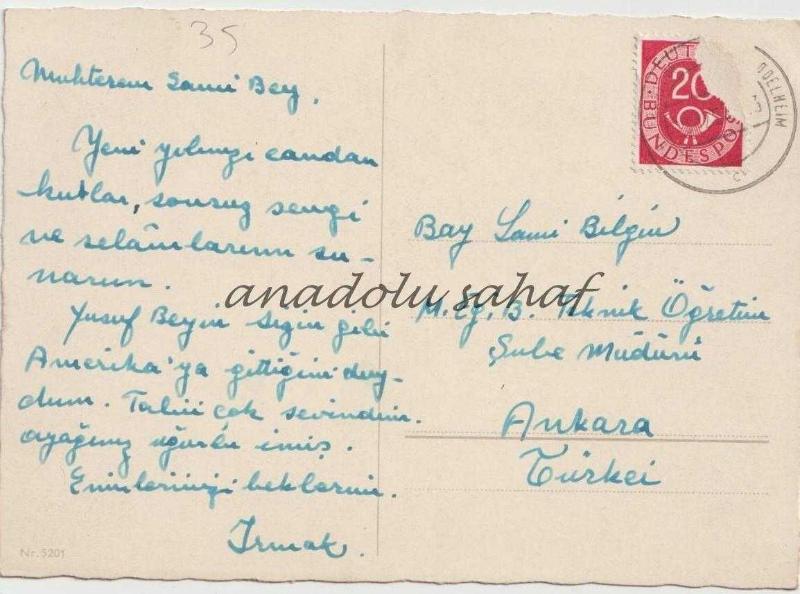 35
Muhterem Sami Bey,
Yeni yılınızı candan
kutlar, sonsuz sevgi
ve selâmlarımı su-
narım.
Yusuf Beyin sizin gibi
Amerika'ya gittiğini duy-
dum. Tabii çok sevindim.
ayağınız uğurlu imiş.
Emirlerinizi beklerim.
Irmak.
Nr. 5201
DEUT
20
BUNDESPO
ODELHEIM
Bay Sami Bilgin
M. Eğ. B. Teknik Öğretim
Şube Müdürü
Ankara
Türkei
anadolu sahaf